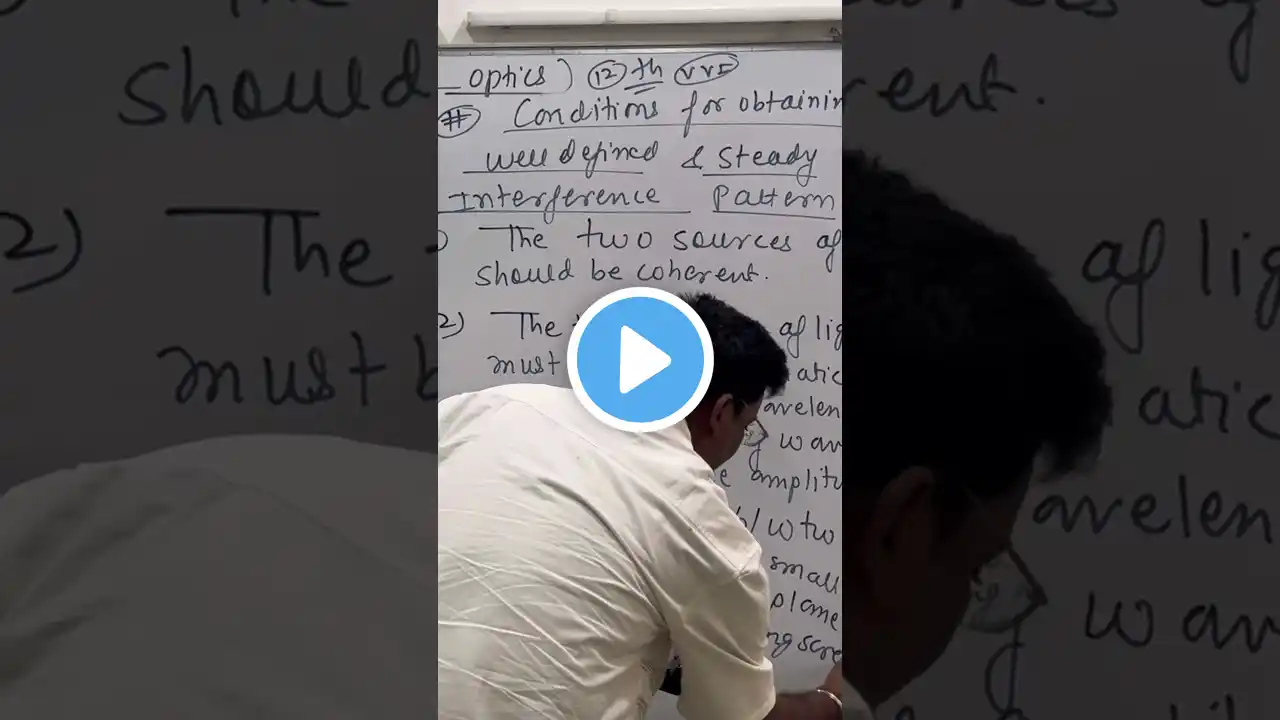 optics) 12 th VVI
# Conditions for obtainin
well defined & Steady
Interference Pattern
) The two sources of
should be coherent.
2) The of lig
must atic
avelen
g wav
e amplitu
b/w two
small
plane
ng scre